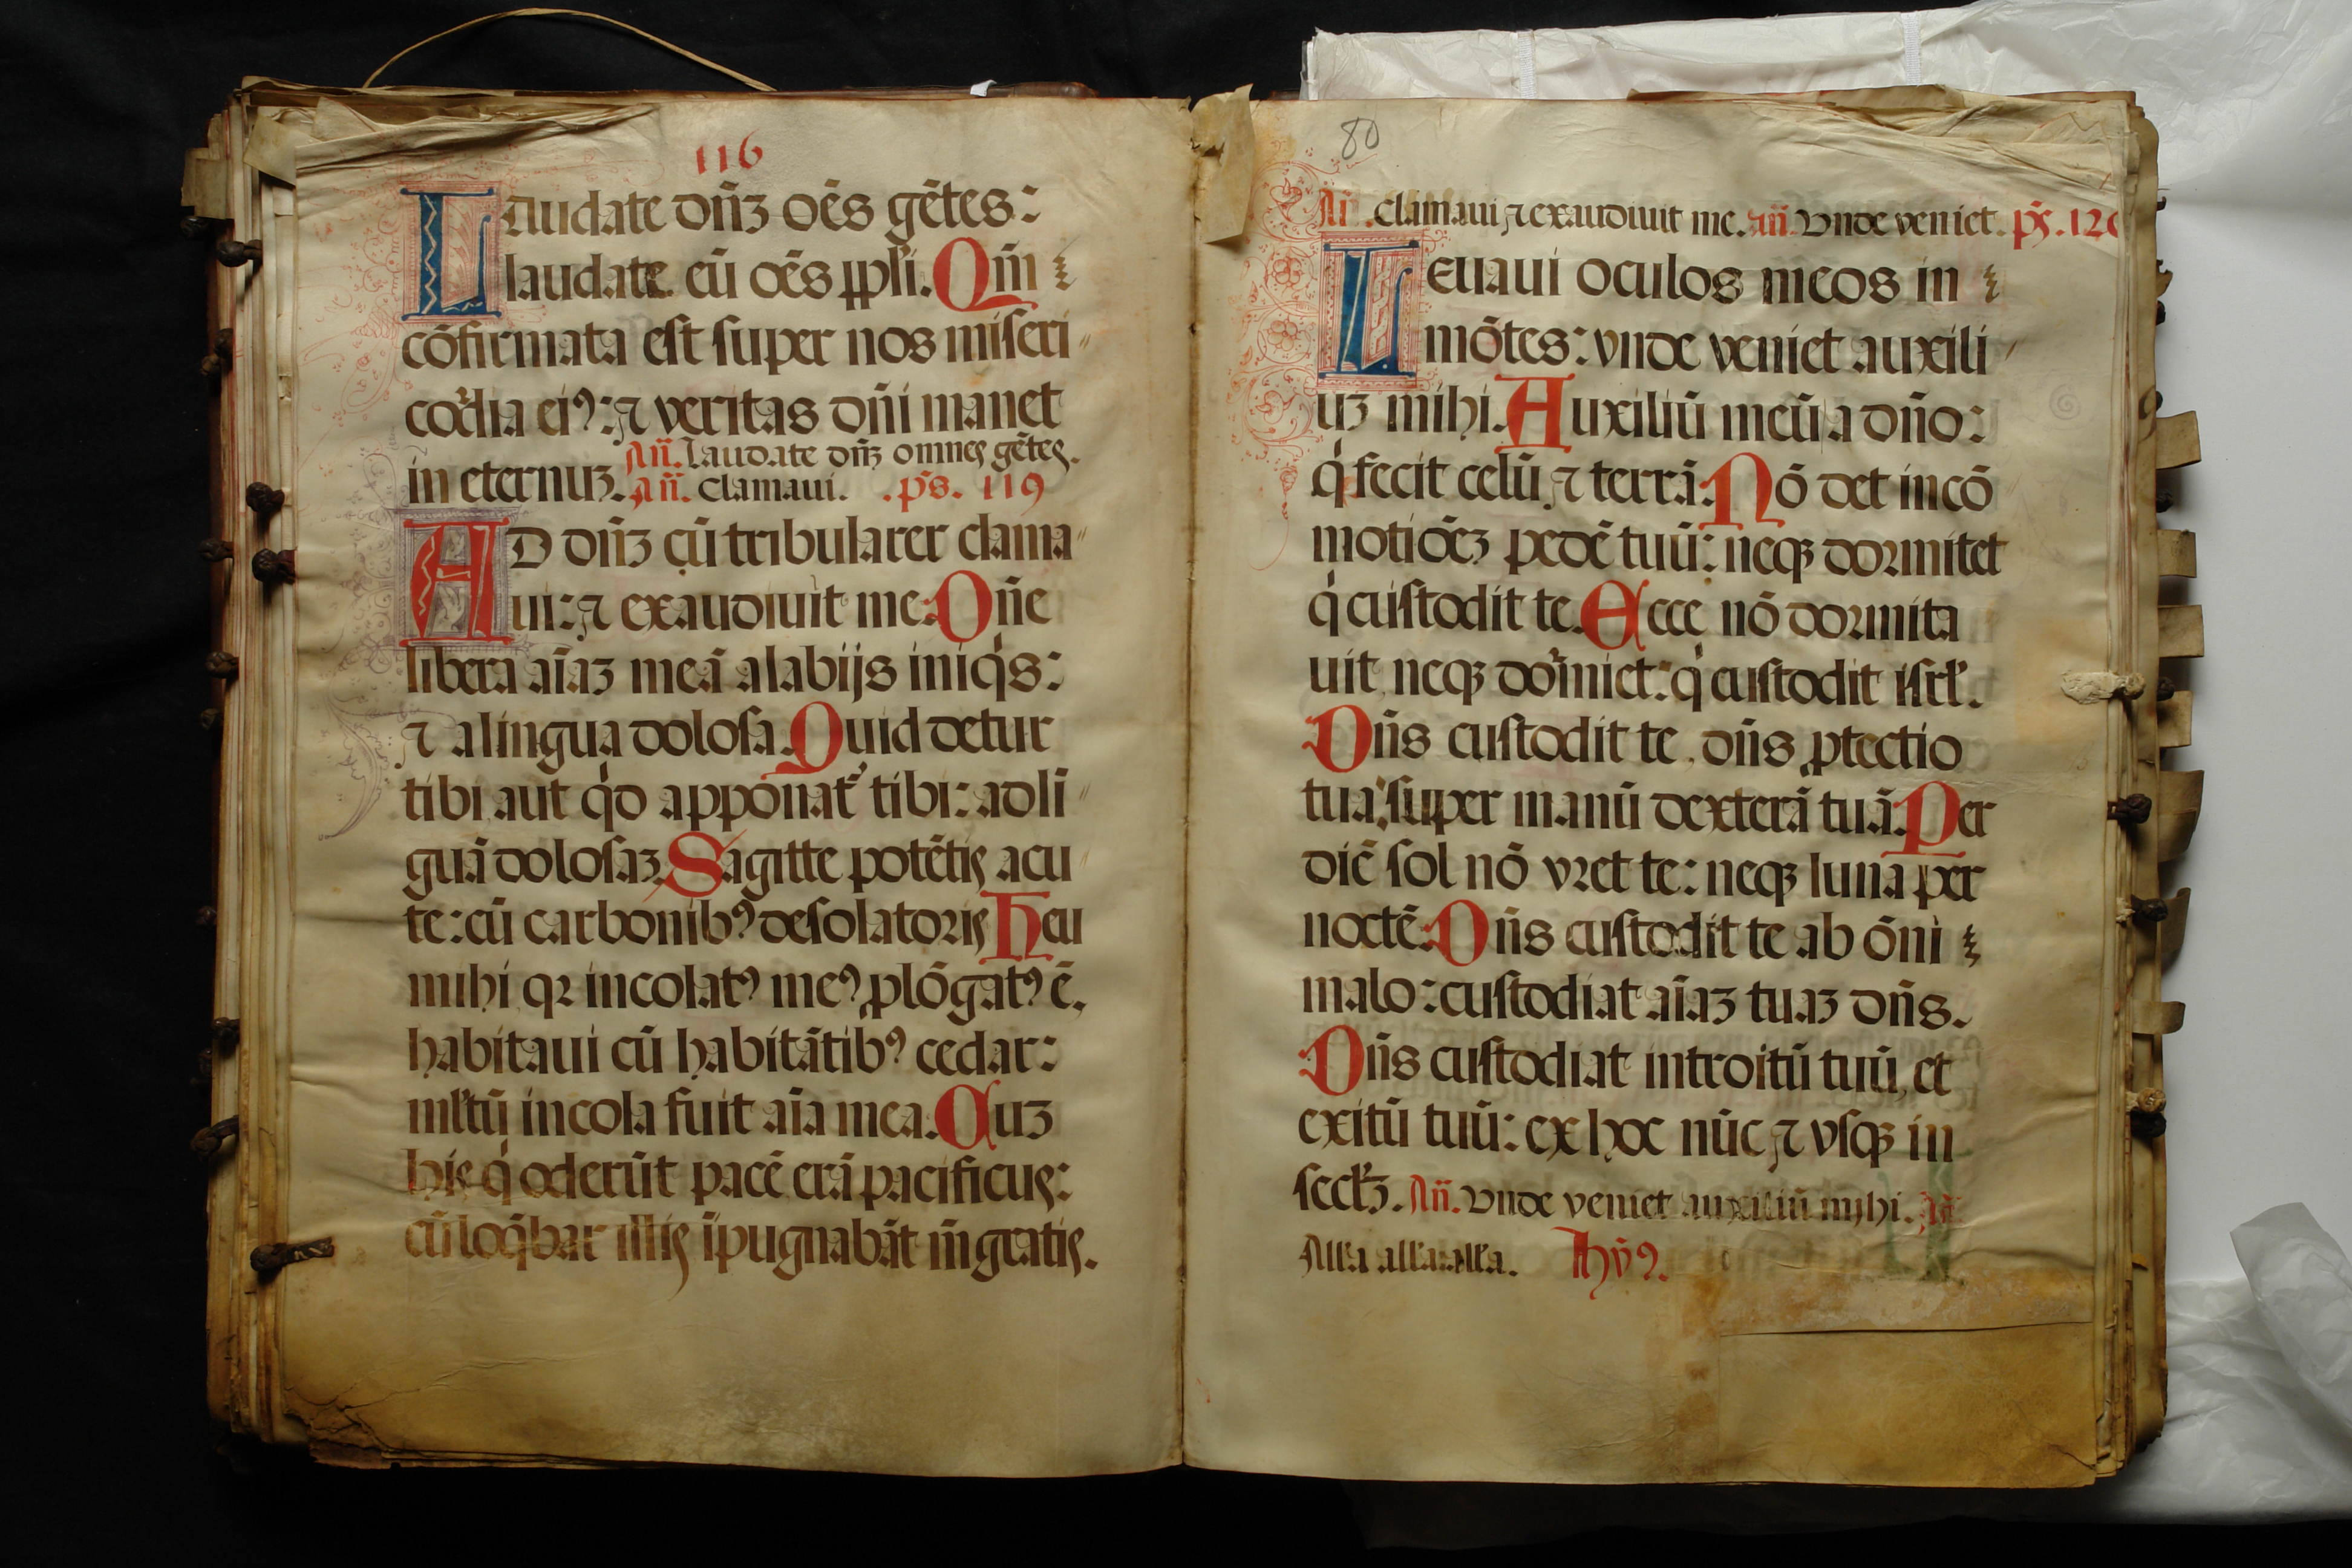 116
Laudate dñȝ oēs gētes:
laudate eū oēs ppl'i. Qm̄
cōfirmata est super nos miseri
cordia eiꝰ: ⁊ veritas dñi manet
in eternuȝ. Añ. Laudate dñȝ omnes gētes.
Añ. Clamaui. .ps. 119
AD dñȝ cū tribularer clama
ui: ⁊ exaudiuit me. Dñe
libera aīaȝ meā a labijs iniqis:
⁊ a lingua dolosa. Quid detur
tibi aut qd apponat̄ tibi: ad li
guā dolosaȝ. Sagitte potētis acu
te: cū carbonibꝰ desolatorijs Heu
mihi qꝛ incolatꝰ meꝰ plōgatꝰ ē.
habitaui cū habitātibꝰ cedar:
ml'tū incola fuit aīa mea. Cuȝ
his q oderūt pacē erā pacificus:
cū loq̄bar illis īpugnabāt m̄ gratis.
80
Añ. Clamaui ⁊ exaudiuit me. Añ. Vnde veniet. ps. 120
Leuaui oculos meos in
mōtes: vnde veniet auxili
uȝ mihi. Auxiliū meū a dño:
q fecit celū ⁊ terrā. Nō det in cō
motiōeȝ pedē tuū: neqȝ dormitet
q custodit te. Ecce nō dormita
uit neqȝ dormiet: q custodit isrl'.
Dñs custodit te, dñs ꝓtectio
tua: super manū dexterā tuā. Per
diē sol nō vret te: neqȝ luna per
noctē. Dñs custodit te ab ōni
malo: custodiat aīaȝ tuaȝ dñs.
Dñs custodiat introitū tuū, et
exitū tuū: ex hoc nūc ⁊ vsqȝ in
secl'ȝ. Añ. Vnde veniet auxiliū myhi. Añ
Alla alla alla. Hȳꝰ.